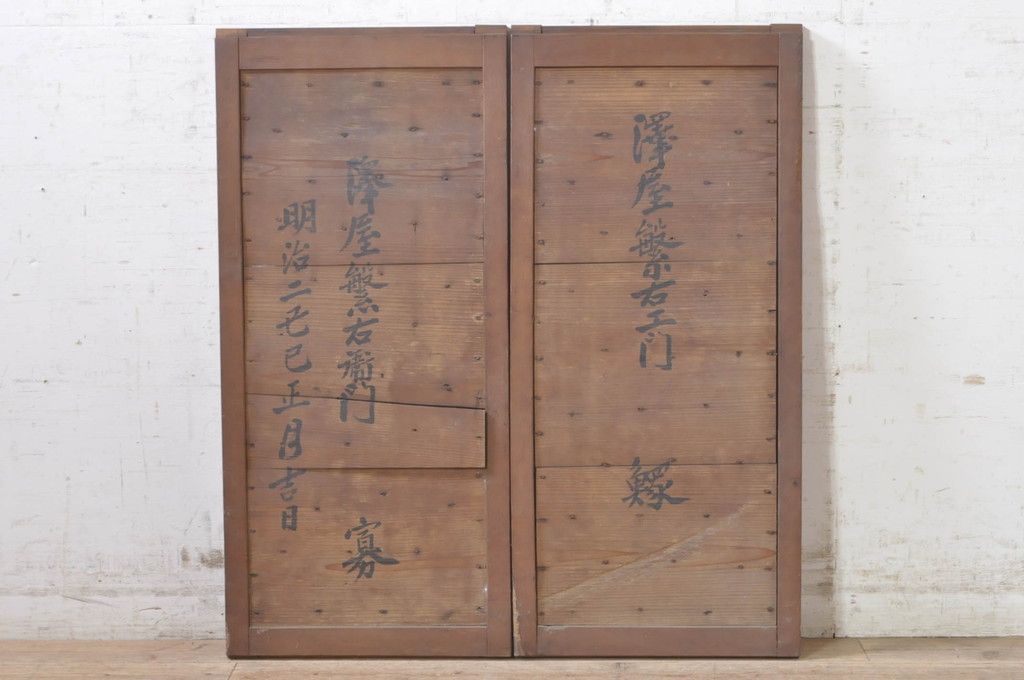 澤屋繁右エ門　鰥
澤屋繁右衞門　寡
明治二年巳正月吉日